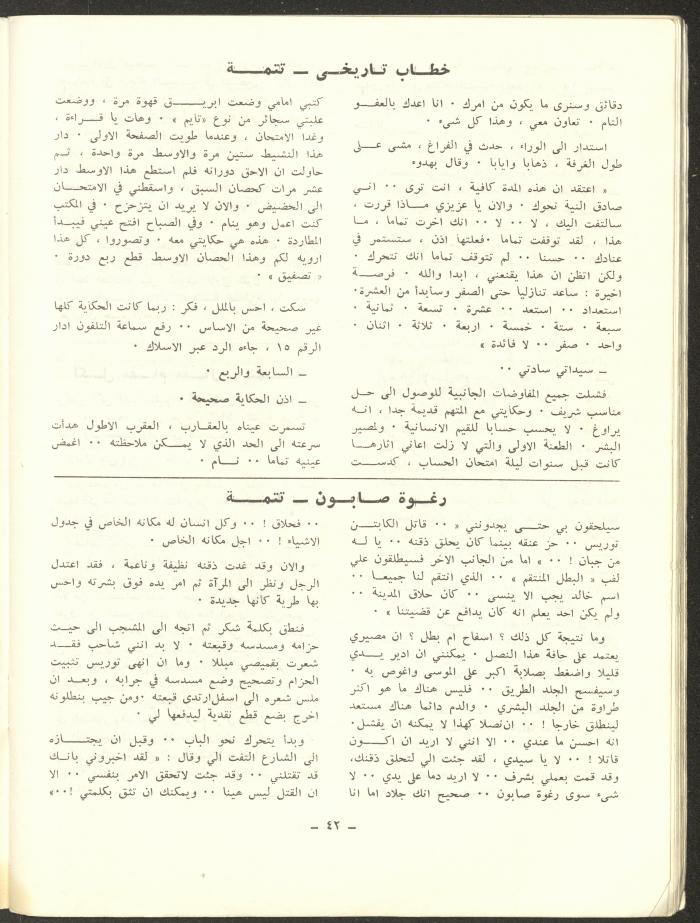 خطـاب تـاريخي ـ تتمـــة
دقائق وسنرى ما يكون من امرك ٠ انا اعدك بالعفــو
التام ٠ تعاون معي ، وهذا كل شىء ٠
استدار الى الوراء ، حدث في الفراغ ، مشى عــلى
طول الغرفة ، ذهابا وايابا ٠ وقال بهدوء
« اعتقد ان هذه المدة كافية ، انت ترى ٠٠ انــي
صادق النية نحوك ٠ والان يا عزيزي مــاذا قررت ،
سالتفت اليك ، لا ٠٠ لا ٠٠ انك اخرت تماما ، مــا
هذا ، لقد توقفت تماما ٠فعلتها اذن ، ستستمر في
عنادك ٠٠ حسنا ٠٠ لم تتوقف تماما انك تتحرك ٠
ولكن اتظن ان هذا يقنعني ، ابدا والله ٠ فرصــة
اخيرة : ساعد تنازليا حتى الصفر وسابدأ من العشرة٠
استعداد ٠٠ استعد ٠٠ عشرة ٠ تسعة ٠ ثمانية ٠
سبعة ٠ ستة ٠ خمسة ٠ اربعة ٠ ثلاثة ٠ اثنان ٠
واحد ٠ صفر ٠٠ لا فائدة »
ـ سيداتي سادتي ٠٠
فشلت جميع المفاوضات الجانبية للوصول الى حــل
مناسب شريف ٠ وحكايتي مع المتهم قديمة جدا ، انــه
يراوغ ٠ لا يحسب حسابا للقيم الانسانية ٠ ولمصير
البشر ٠ الطعنة الاولى والتي لا زلت اعاني اثارهــا
كانت قبل سنوات ليلة امتحان الحساب ، كدســت
كتبي امامي وضعت ابريــــق قهوة مرة ، ووضعت
علبتي سجائر من نوع «تايم » ٠ وهات يا قــراءة ،
وغدا الامتحان ، وعندما طويت الصفحة الاولى ٠ دار
هذا النشيط ستين مرة والاوسط مرة واحدة ، ثــم
حاولت ان الاحق دورانه فلم استطع هذا الاوسط دار
عشر مرات كحصان السبق ، واسقطني في الامتحــان
الى الحضيض ٠ والان لا يريد ان يتزحزح ٠ في المكتب
كنت اعمل وهو ينام ٠ وفي الصباح افتح عيني فيبــدأ
المطاردة ٠ هذه هي حكايتي معه ٠ وتصوروا ، كل هذا
ارويه لكم وهذا الحصان الاوسط قطع ربع دورة ٠
« تصفيق » ٠
سكت ، احس بالملل ، فكر : ربما كانت الحكاية كلها
غير صحيحة من الاساس ٠٠ رفع سماعة التلفون ادار
الرقم ١٥ ، جاءه الرد عبر الاسلاك ٠
ـ السابعة والربع ٠
ـ اذن الحكاية صحيحة ٠
تسمرت عيناه بالعقارب ، العقرب الاطول هدأت
سرعته الى الحد الذي لا يمــكن ملاحظته ٠٠ اغمض
عينيه تماما ٠٠ نــام ٠
رغـوة صـابـون ـ تتمـــة
سيلحقون بي حتــى يجدونني « ٠٠ قاتل الكابتــن
توريس ٠٠ حز عنقه بينما كان يحلق ذقنه ٠٠ يا لــه
من جبان ! ٠٠ » اما من الجانب الاخر فسيطلقون علي
لقب « البطل المنتقم » ٠٠ الذي انتقم لنا جميعــا ٠٠
اسم خالد يجب الا ينسى ٠٠ كان حلاق المدينة ٠٠
ولم يكن احد يعلم انه كان يدافع عن قضيتنا » ٠
وما نتيجة كل ذلك ؟ اسفاح ام بطل ؟ ان مصيري
يعتمد على حافة هذا النصل ٠ يمكنني ان ادير يــدي
قليلا واضغط بصلابة اكبر على الموسى واغوص به ٠
وسيفسح الجلد الطريق ٠٠ فليس هناك ما هو اكثر
طراوة من الجلد البشري ٠ والدم دائما هناك مستعد
لينطلق خارجا ! ٠٠ ان نصلا كهذا لا يمكنه ان يفشل٠
انه احسن ما عندي ٠٠ الا انني لا اريد ان اكــون
قاتلا ! ٠٠ لا يا سيدي ، لقد جئت الي لتحلق ذقنك،
وقد قمت بعملي بشرف ٠٠ لا اريد دما على يدي ٠٠ لا
شىء سوى رغوة صابون ٠٠ صحيح انك جلاد اما انا
٠٠ فحلاق ! ٠٠ وكل انسان له مكانه الخاص في جدول
الاشياء ! ٠٠ اجل مكانه الخاص ٠
والان وقد غدت ذقنه نظيفة وناعمة ، فقد اعتدل
الرجل ونظر الى المرآة ثم امر يده فوق بشرته واحس
بها طرية كانها جديدة ٠
فنطق بكلمة شكر ثم اتجه الى المشجب الى حيــث
حزامه ومسدسه وقبعته ٠ لا بد انني شاحب فقــد
شعرت بقميصي مبللا ٠ وما ان انهى توريس تثبيت
الحزام وتصحيح وضع مسدسه في جرابه ، وبعد ان
ملس شعره الى اسفل ارتدى قبعته ٠ومن جيب بنطلونه
اخرج بضع قطع نقدية ليدفعها لي ٠
وبدأ يتحرك نحو الباب ٠٠ وقبل ان يجتــازه
الى الشارع التفت الي وقال : « لقد اخبروني بانــك
قد تقتلني ٠٠ وقد جئت لاتحقق الامر بنفسي ٠٠ الا
ان القتل ليس هينا ٠٠ ويمكنك ان تثق بكلمتي !٠٠»
ـ ٤٢ ـ